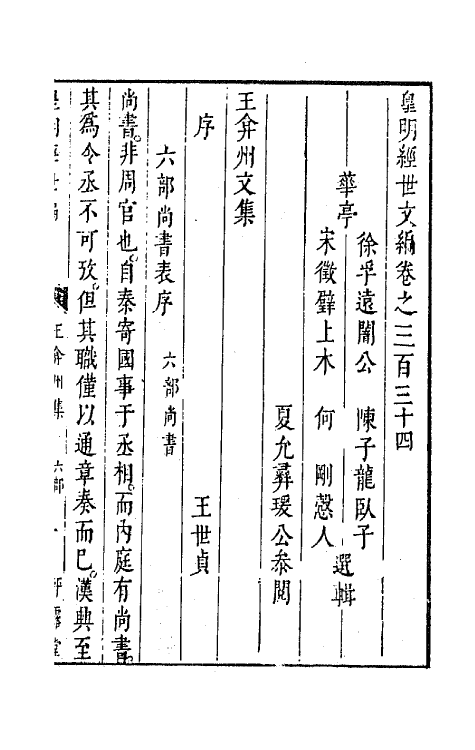 皇明經世文編卷之三百三十四
華亭
徐孚遠闇公 陳子龍臥子
宋徵璧上木 何 剛慤人
選輯
夏允彝瑗公參閱
王弇州文集
序
王世貞
六部尚書表序 六部尚書
尚書。非周官也。自秦寄國事于丞相。而內庭有尚書。
其爲令丞不可攷。但其職僅以通章奏而已。漢興至
王弇州集 六部 一 平露堂